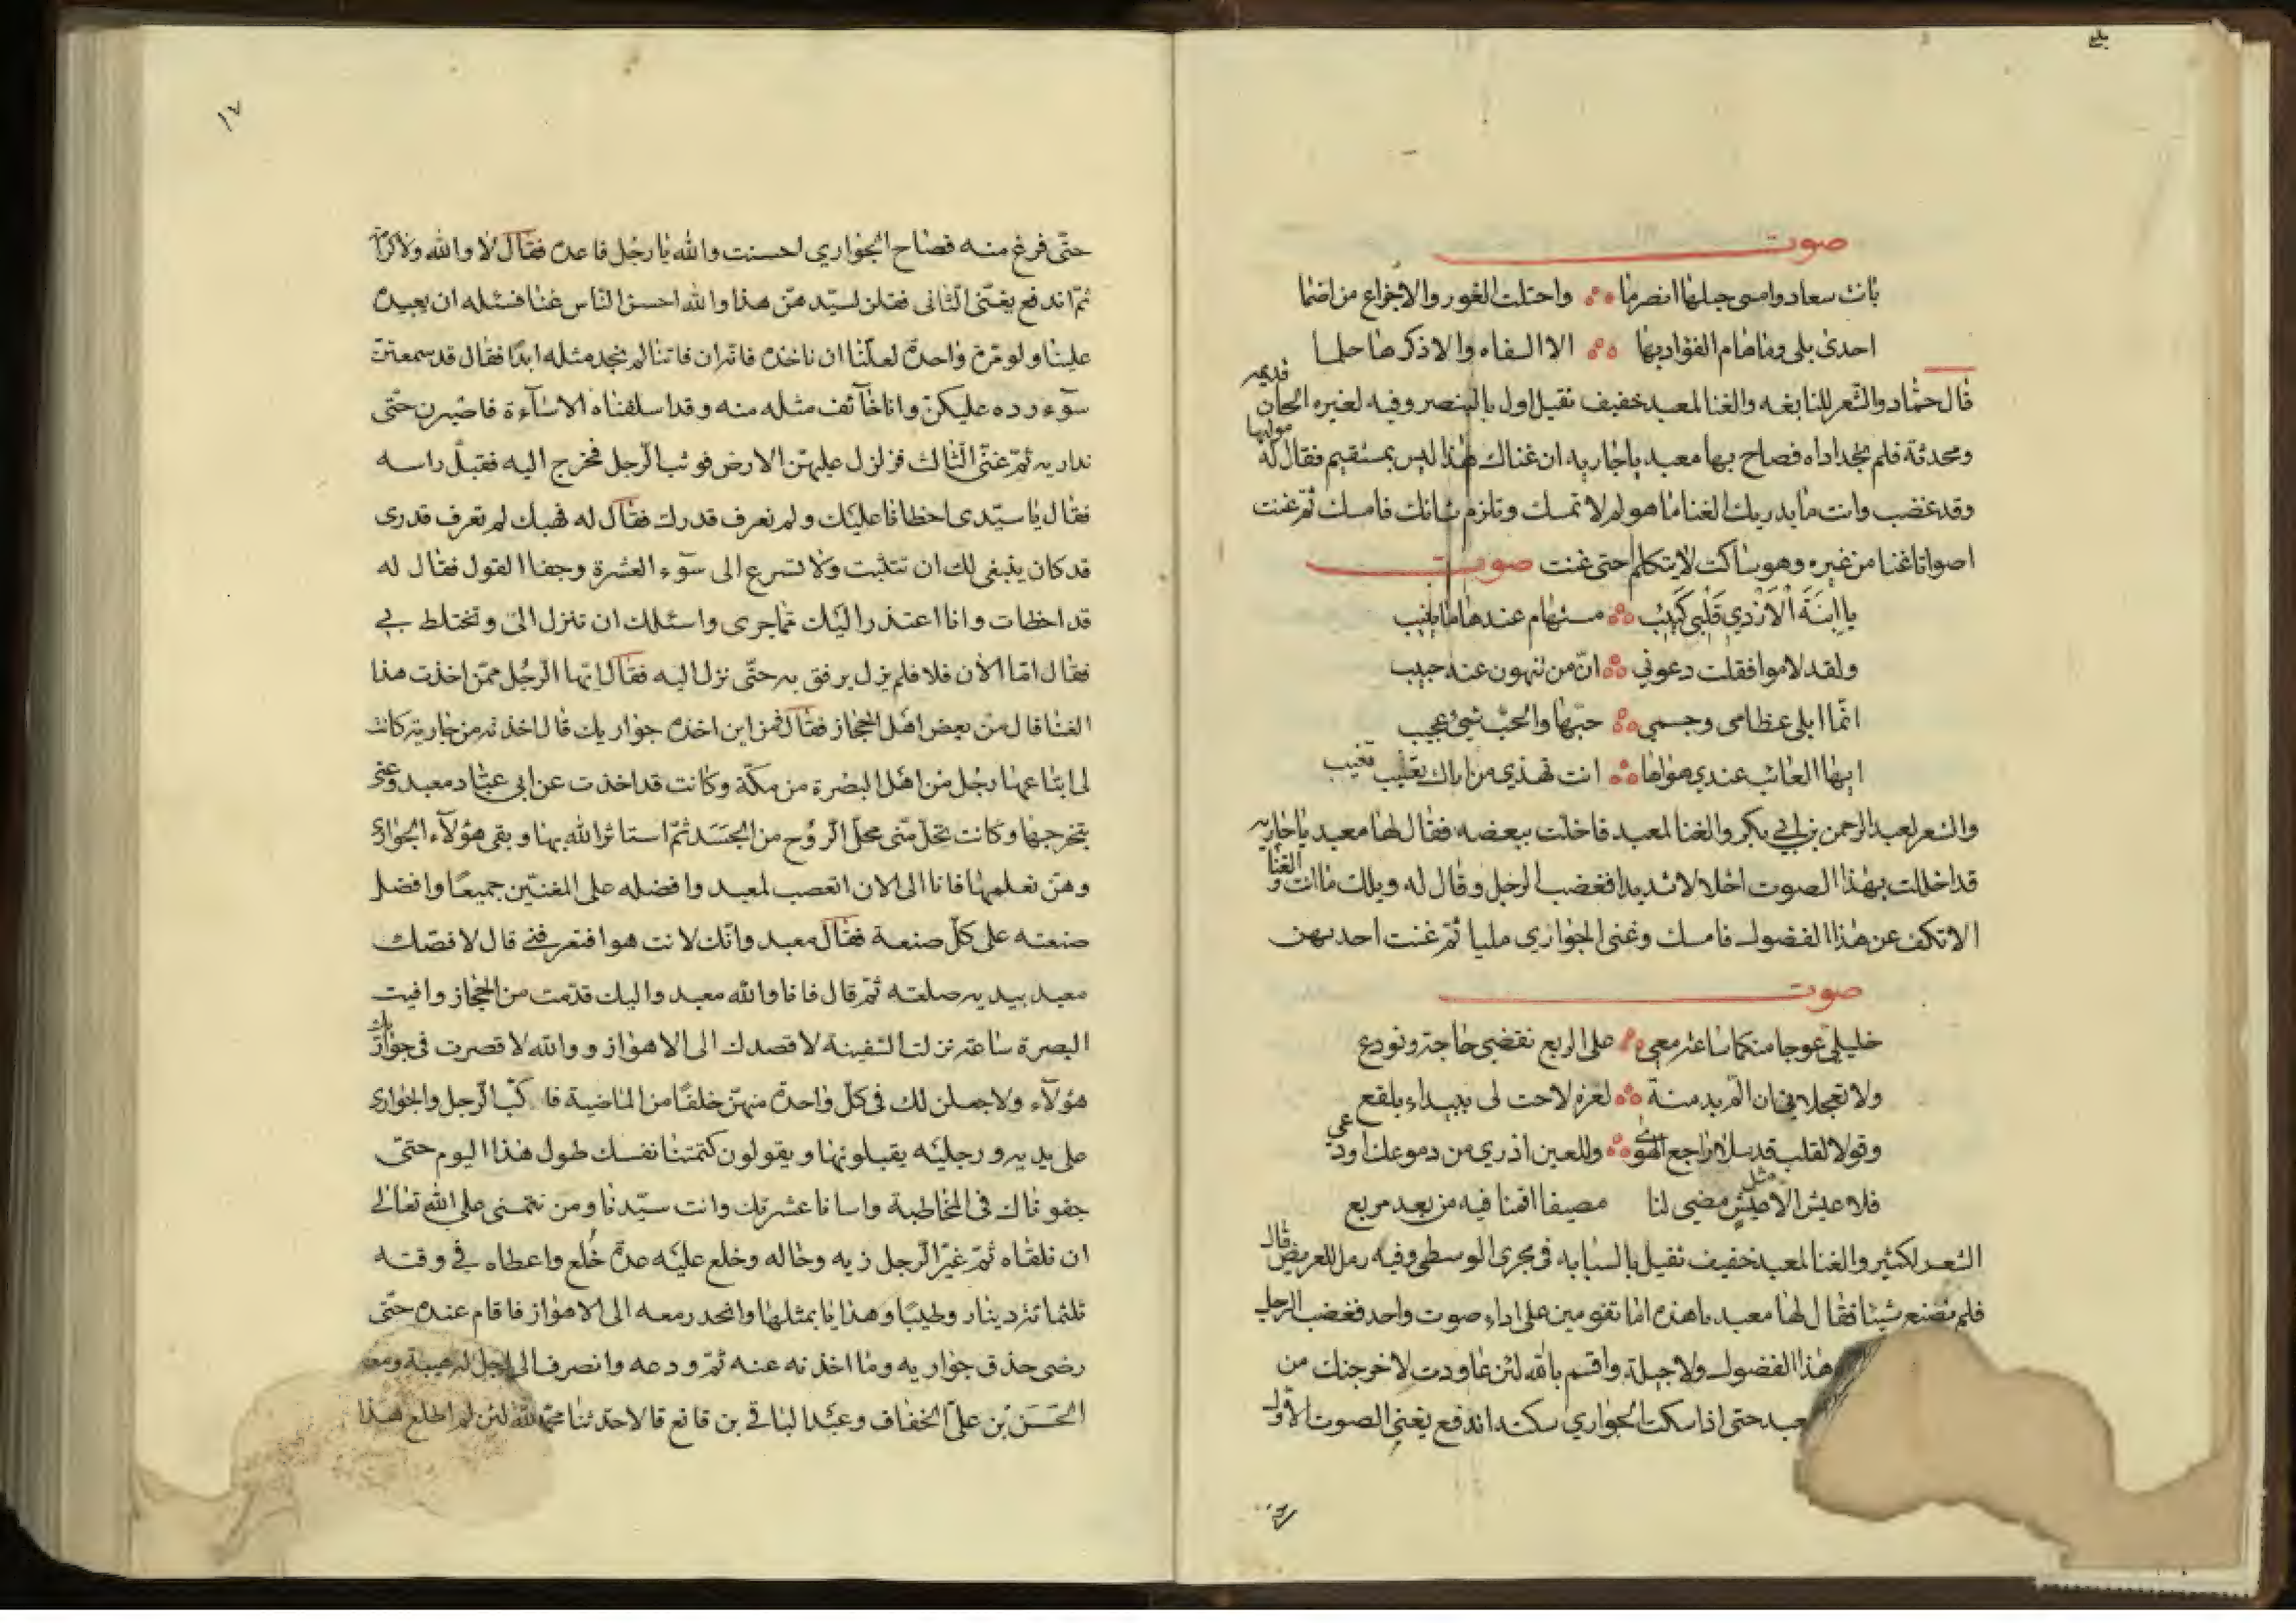 صوت
بانت سعاد وامسى حبلها انصرما واحتلت الغور والاجزاع من اضما
احدى بلى وماهام الفؤاد بها الا السفاه والا ذكرها حلما
قال حماد والشعر للنابغه والغنا لمعبد خفيف ثقيل اول بالبنصر وفيه لغيره الحان قديمه
ومحدثة فلم تجد اداه فصاح بها معبد ياجاريه ان غناك هذا ليس بمستقيم فقال له مولاها
وقد غضب وانت ما يدريك الغنا ما هو لم لا تمسك وتلزم شانك فامسك ثم غنت
اصواتا غنا من غيره وهو ساكت لا يتكلم حتى غنت صوت
يا ابنَةَ الْاَزْدِي قَلْبى كَئِيْبُ مستهام عندها ما ينيب
ولقد لاموا فقلت دعوني انّ من تنهون عنه حبيب
انّما ابلى عظامى وجسمي حبّها والحبّ شئ عجيب
ايها العائب عندي هواها انت تفدي من اراك تعيب تغيب
والشعر لعبد الرحمن بن ابي بكر والغنا لمعبد فاخلت ببعضه فقال لها معبد يا جاريه
قد اخللت بهذا الصوت اخلالا شديدا فغضب الرجل وقال له ويلك ما انت والغنا
الا تكف عن هذا الفضول فامسك وغنى الجواري مليا ثم غنت احديهن
صوت
خليلي عوجا منكما ساعة معي على الربع نقضى حاجة ونودع
ولا تعجلانى ان المّ بدمنة لعزة لاحت لى ببيداء بلقع
وقولا لقلب قد سلا راجع الهوى وللعين اذري من دموعك او دعي
فلا عيش الا مثل عيش مضى لنا مصيفا اقمنا فيه من بعد مربع
الشعر لكثير والغنا لمعبد خفيف ثقيل بالسبابه فى مجرى الوسطى وفيه رمل للغريض قال
فلم تصنع شيئا فقال لها معبد ياهذه اما تقومين على اداء صوت واحد فغضب الرجل
هذا الفضول ولا حيلة واقسم بالله لئن عاودت لاخرجنك من
عبد حتى اذا سكت الجواري سكتة اندفع يغني الصوت الاول
١٧
حتّى فرغ منه فصاح الجواري احسنت والله يا رجل فاعده فقال لا والله ولا كرامة
ثمّ اندفع يغنّى الثانى فقلن لسيّدهنّ هذا والله احسن الناس غنا فسئله ان يعيده
علينا ولو مرّة واحدة لعلّنا ان ناخذه فانّه ان فاتنا لم نجد مثله ابدًا فقال قد سمعتنّ
سوٓء ردّه عليكنّ وانا خآئف مثله منه وقد اسلفناه الاسآءة فاصبرن حتّى
نداريه ثمّ غنّى الثالث فزلزل عليهنّ الارض فوثب الرّجل فخرج اليه فقبّل راسه
فقال يا سيّدى اخطانا عليك ولم نعرف قدرك فقال له فهبك لم تعرف قدرى
قد كان ينبغى لك ان تتثبت ولا تسرع الى سوٓء العشرة وجفا القول فقال له
قد اخطات وانا اعتذر اليك ممّا جرى واسئلك ان تنزل الىّ وتختلط بي
فقال امّا الآن فلا فلم يزل يرفق به حتّى نزل اليه فقال ايّها الرّجل ممّن اخذت هذا
الغنا قال من بعض اهل الحجاز فقال فمن اين اخذه جواريك قال اخذنه من جارية كانت
لى ابتاعها رجل من اهل البصرة من مكّة وكانت قد اخذت عن ابى عبّاد معبد وعنى
بتخرجها وكانت تحلّ منّى محلّ الرّوح من الجسَد ثمّ استاثر الله بها وبقى هؤلآء الجوارى
وهنّ تعلمها فانا الى الان اتعصب لمعبد وافضله على المغنّين جميعًا وافضل
صنعته على كلّ صنعة فقال معبد وانّك لانت هو افتعرفني قال لا فصك
معبد بيديه صلعته ثمّ قال فانا والله معبد واليك قدّمت من الحجاز وافيت
البصرة ساعة نزلت السّفينة لاقصدك الى الاهواز ووالله لا قصرت فى جواريك
هؤلآء ولاجعلن لك فى كلّ واحدة منهنّ خلفًا من الماضية فا كبّ الرّجل والجوارى
على يديه ورجليه يقبلونها ويقولون كتمتنا نفسك طول هذا اليوم حتّى
جفوناك فى المخاطبة واسانا عشرتك وانت سيّدنا ومن نتمنى على الله تعالى
ان نلقاه ثمّ غيّر الرّجل زيه وحاله وخلع عليه عدة خُلع واعطاه في وقته
ثلثمائة دينار وطيبًا وهدايا بمثلها وانحدر معه الى الاهواز فاقام عنده حتّى
رضى حذق جواريه وما اخذنه عنه ثمّ ودعه وانصرف الى
الحَسَن بْن علىّ الخفاف وعبد الباقي بن قانع قالا حدثنا محمد